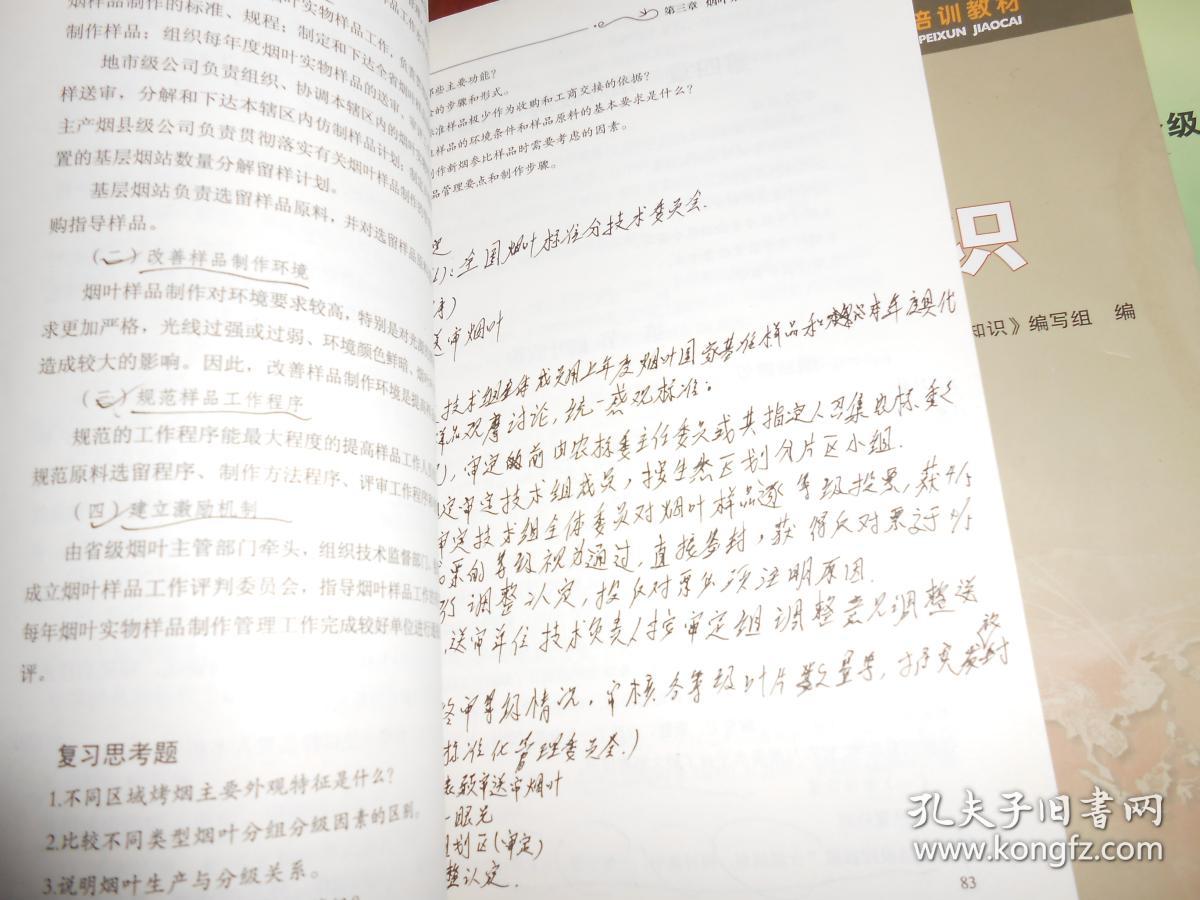 烟样品制作的标准、规程；制定和下达全省烟叶
制作样品；组织每年度烟叶实物样品的送审、
叶实物样品工作，负责
地市级公司负责组织、协调本辖区内的烟叶
样送审，分解和下达本辖区内仿制样品计划；
主产烟县级公司负责贯彻落实有关烟叶样品制作的
置的基层烟站数量分解留样计划。
基层烟站负责选留样品原料，并对选留样品
购指导样品。
（二）改善样品制作环境
烟叶样品制作对环境要求较高，特别是对光
求更加严格，光线过强或过弱、环境颜色鲜暗、
造成较大的影响。因此，改善样品制作环境是提高
（三）规范样品工作程序
规范的工作程序能最大程度的提高样品工作人
规范原料选留程序、制作方法程序、评审工作程序
（四）建立激励机制
由省级烟叶主管部门牵头，组织技术监督部门、
成立烟叶样品工作评判委员会，指导烟叶样品工作
每年烟叶实物样品制作管理工作完成较好单位进行
评。
复习思考题
1.不同区域烤烟主要外观特征是什么？
2.比较不同类型烟叶分组分级因素的区别。
3.说明烟叶生产与分级关系。
第三章 烟叶
些主要功能？
的步骤和形式。
准样品极少作为收购和工商交接的依据？
样品的环境条件和样品原料的基本要求是什么？
作新烟参比样品时需要考虑的因素。
品管理要点和制作步骤。
定
：全国烟叶标准分技术委员会.
送审烟叶
技术组全体成员用上年度烟叶国家基准样品和 本年度具代
样品观摩讨论，统一感观标准；
，审定前由农标委主任委员或其指定人召集农标委
定审定技术组成员，按生态区划分片区小组.
审定技术组全体委员对烟叶样品逐等级投票，获4/5
票的等级视为通过，直接签封，获得反对票 1/5
调整认定，投反对票必须注明原因.
送审单位技术负责人按审定组调整意见调整送
终审等级情况，审核各等级叶片数量等，
标准化管理委员会）
送审烟叶
一眼光
划区（审定）
整认定.
83
培训教材
PEIXUN JIAOCAI
级
识
知识》编写组 编
孔夫子旧书网
www.kongfz.com